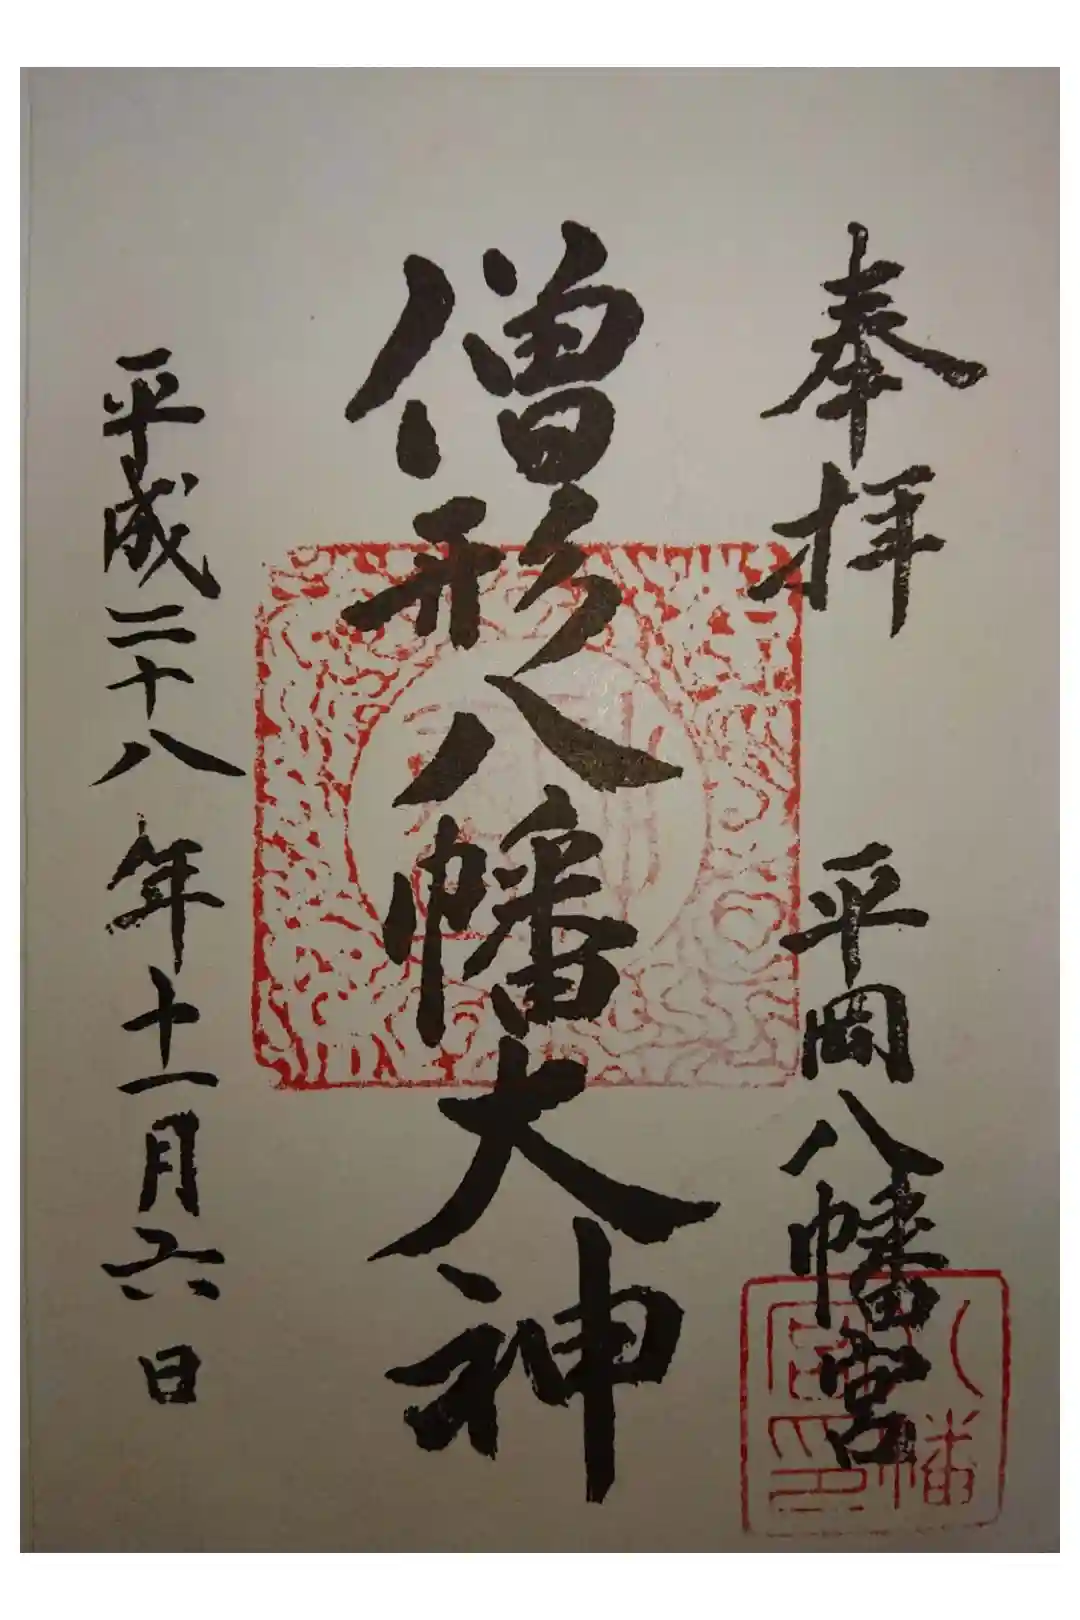 奉拝
平岡八幡宮
僧形八幡大神
平成二十八年十一月六日
八幡宮印